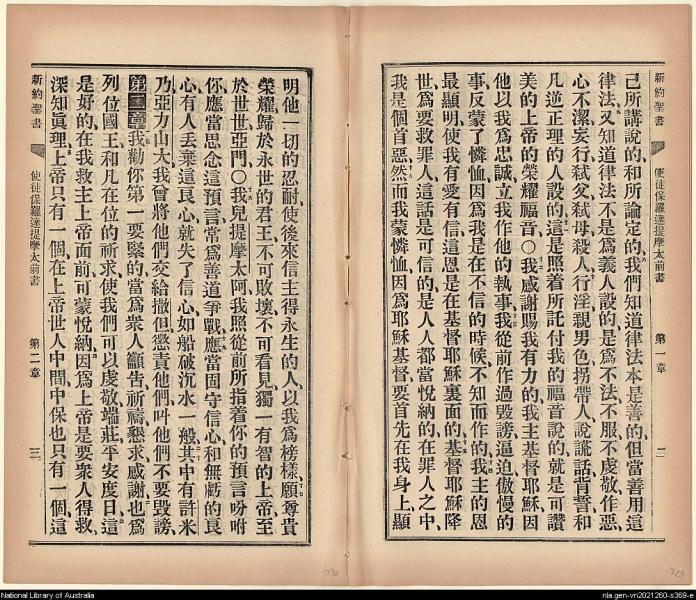 新約聖書 使徒保羅達提摩太前書 第一章 二
己所講說的、和所論定的、我們知道律法本是善的、但當善用這
律法、又知道律法不是爲義人設的、是爲不法不服不虔敬、作惡
心不潔妄行、弒父弒母殺人、行淫親男色、拐帶人說謊話背誓、和
凡逆正理的人設的、這是照着所託付我的福音說的、就是可讚
美的上帝的榮耀福音、〇我感謝賜我有力的我主基督耶穌、因
他以我爲忠誠、立我作他的執事、我從前作過毀謗逼迫傲慢的
事、反蒙了憐恤、因爲我是在不信的時候、不知而作的、我主的恩
最顯明、使我有愛有信、這恩是在基督耶穌裏面的、基督耶穌降
世、爲要救罪人、這話是可信的、是人人都當悅納的、在罪人之中、
我是個首惡、然而我蒙憐恤、因爲耶穌基督、要首先在我身上、顯
明他一切的忍耐、使後來信主得永生的人、以我爲榜樣、願尊貴
榮耀歸於永世的君王、不可敗壞、不可看見、獨一有智的上帝、至
於世世、亞門、〇我兒提摩太阿、我照從前所指着你的預言吩咐
你、應當思念這預言、常爲善道爭戰、應當固守信心、和無虧的良
心、有人丟棄這良心、就失了信心、如船破沉水一般、其中有許米
乃亞力山大、我曾將他們交給撒但懲責他們、叫他們不要毀謗、
第二章 我勸你第一要緊的、當爲衆人籲告祈禱懇求感謝、也爲
列位國王、和凡在位的祈求、使我們可以虔敬端莊、平安度日、這
是好的、在我救主上帝面前、可蒙悅納、因爲上帝是要衆人得救、
深知眞理、上帝只有一個、在上帝世人中間、中保也只有一個、這
新約聖書 使徒保羅達提摩太前書 第二章 三
730
729
National Library of Australia
nla.gen-vn2021260-s369-e